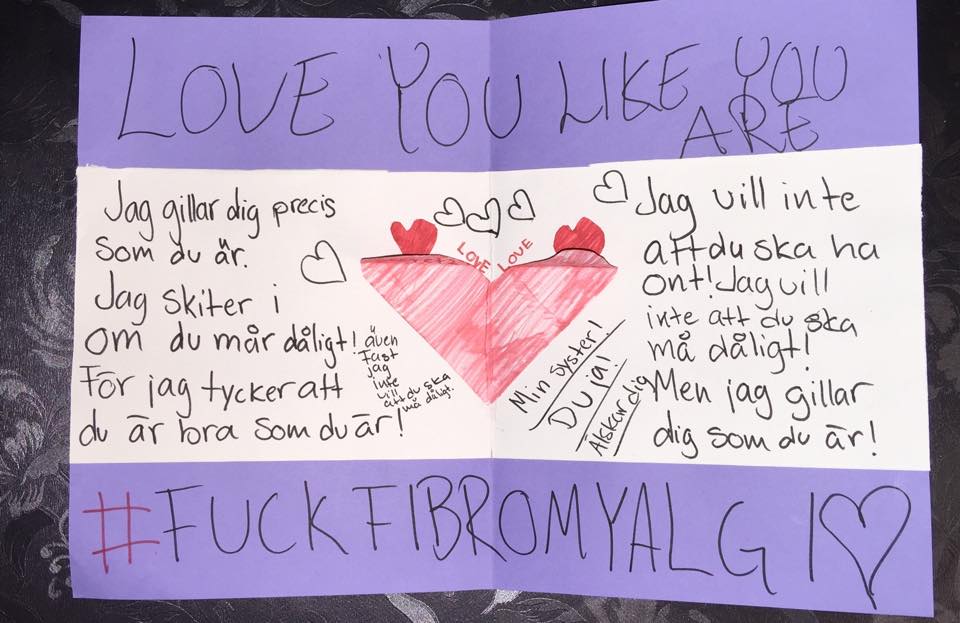 LOVE YOU LIKE YOU
ARE
Jag gillar dig precis
som du är.
Jag skiter i
om du mår dåligt!
För jag tycker att
du är bra som du är!
även
Fast
jag
inte
vill
att du ska
må dåligt.
LOVE LOVE
Min syster!
Du ja!
Älskar dig
Jag vill inte
att du ska ha
ont! Jag vill
inte att du ska
må dåligt!
Men jag gillar
dig som du är!
#FUCKFIBROMYALGI